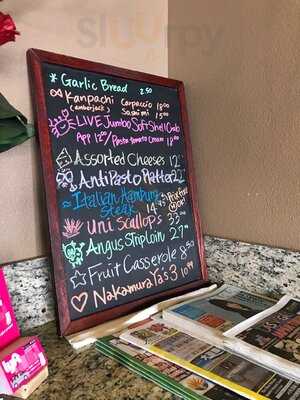 Garlic Bread 2.50
Kanpachi Carpaccio 18.00
(amberjack) Sashimi 15.00
LIVE Jumbo Soft Shell Crab
App 12.00/Pasta tomato Cream 18.00
Assorted Cheeses 12
AntiPasto Platter 22
Italian Hamburg
Steak 14
Uni Scallop's 33.00
Angus Striploin 27
Fruit Casserole 8.50
Nakamura Ya's 3 10.99